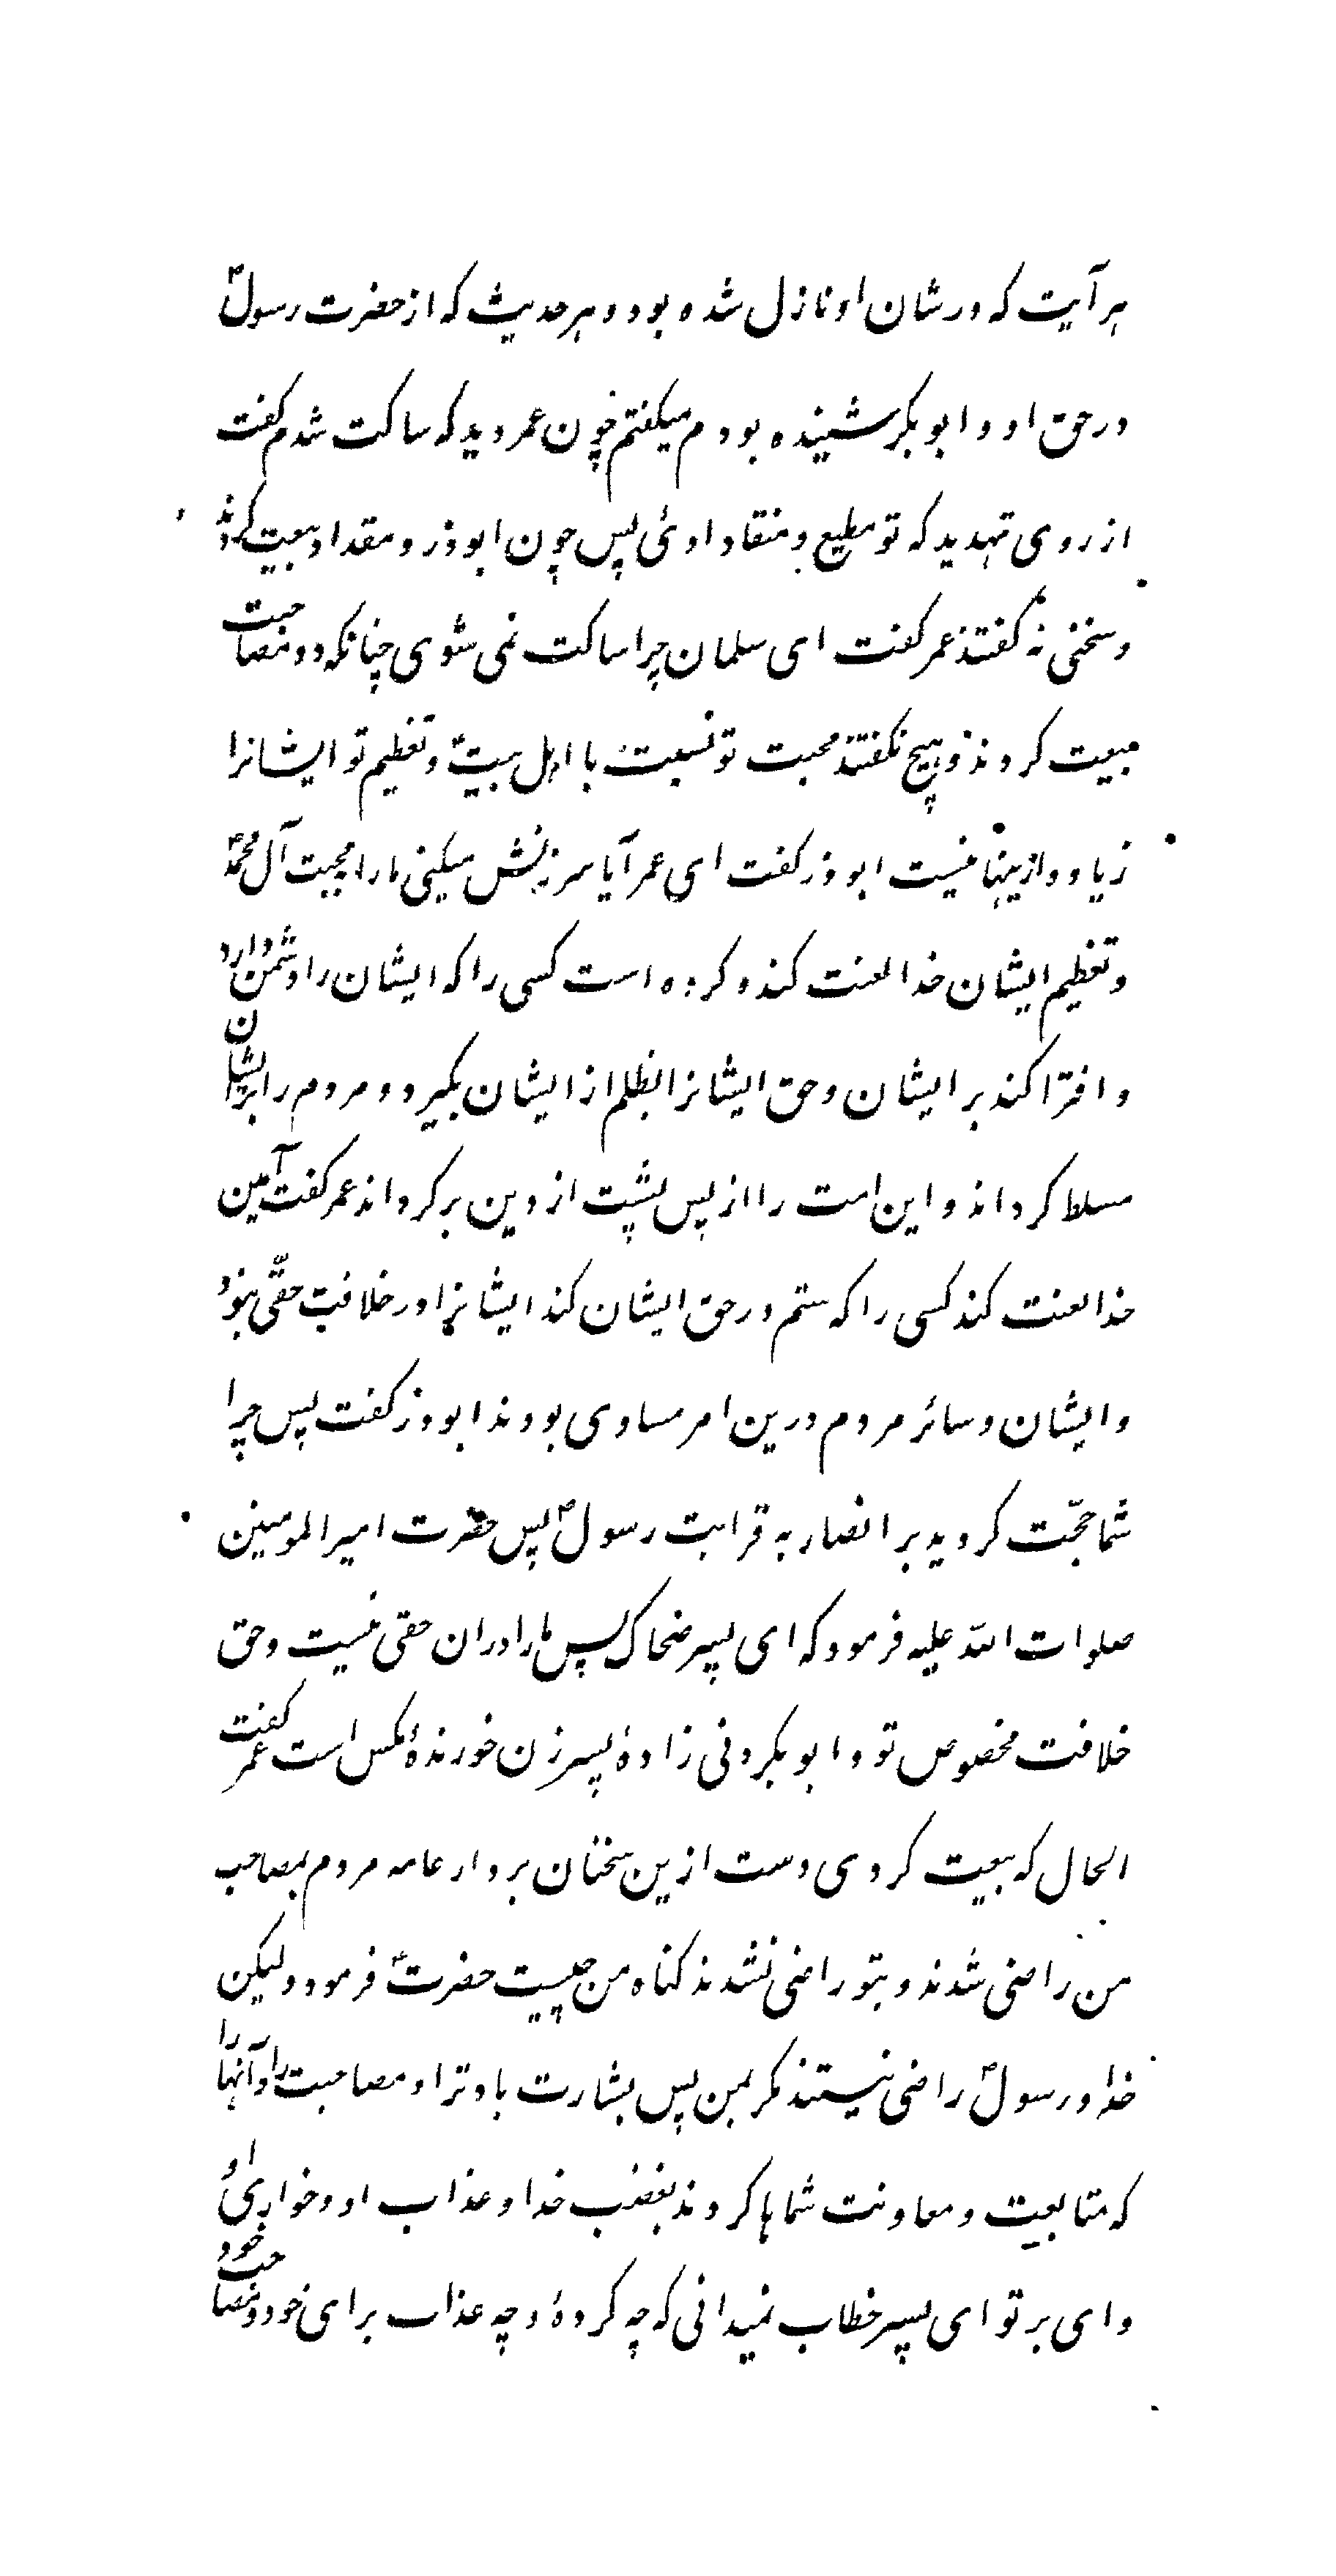 هر آیت که در شان او نازل شده بود و هر حدیث که از حضرت رسولؐ
در حق او و ابوبکر شنیده بودم میگفتم چون عمر دید که ساکت شدم گفت
از روی تهدید که تو مطیع و منقاد اوئی پس چون ابوذر و مقداد بیعت کردند
و سخنی نه گفتند عمر گفت ای سلمان چرا ساکت نمی شوی چنانکه دو مصاحبت
بیعت کردند و هیچ نگفتند محبت تو نسبت با اهل بیتؑ و تعظیم تو ایشانرا
زیاد و ازینها نیست ابوذر گفت ای عمر آیا سرزنش میکنی ما را بمحبت آل محمدؐ
و تعظیم ایشان خدا لعنت کند و کرده است کسی را که ایشان را دشمن دارد
و افترا کند بر ایشان و حق ایشانرا بظلم از ایشان بگیرد و مردم را بر ایشان
مسلط گرداند و این امت را از پس پشت از دین برگرداند عمر گفت آمین
خدا لعنت کند کسی را که ستم در حق ایشان کند ایشانرا در خلافت حقّی نبود
و ایشان و سائر مردم درین امر مساوی بودند ابوذر گفت پس چرا
شما حجّت کردید بر انصار به قرابت رسولؐ پس حضرت امیرالمومنین
صلوات الله علیه فرمود که ای پسر ضحاک پس ما را دران حقی نیست و حق
خلافت مخصوص تو و ابوبکر دنی زادهٔ پسر زن خورندهٔ مگس است عمر گفت
الحال که بیعت کردی دست ازین سخنان بردار عامه مردم بمصاحب
من راضی شدند و بتو راضی نشدند گناه من چیست حضرتؑ فرمود ولیکن
خدا و رسولؐ راضی نیستند مگر بمن پس بشارت باد ترا و مصاحبت را و آنها را
که متابعت و معاونت شماها کردند بغضب خدا و عذاب او و خواری او
وای بر تو ای پسر خطاب نمیدانی که چه کردهٔ و چه عذاب برای خود و مصاحبت خود